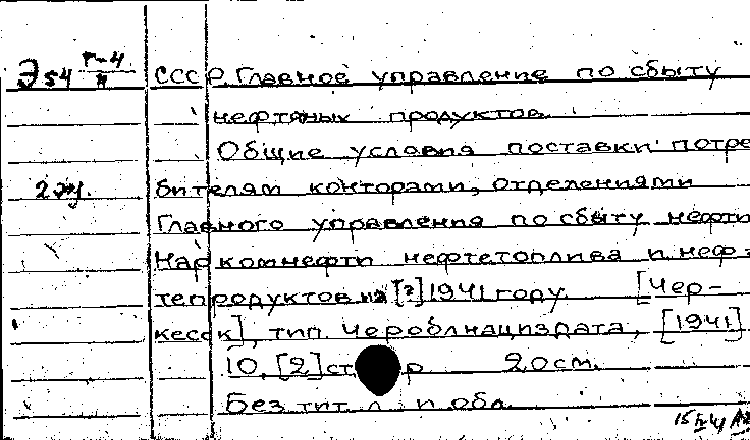 Э54 Г-4/4 СССР. Главное управление по сбыту
нефтяных продуктов.
Общие условия поставки потре-
2 экз. бителям конторами, отделениями
Главного управления по сбыту нефти
Наркомнефти нефтетоплива и неф-
тепродуктов на [?] 1941 году. [Чер-
кесск], тип. Черобл
[1941]
10, [2] стр 20 см.
Без тит. л. и обл.